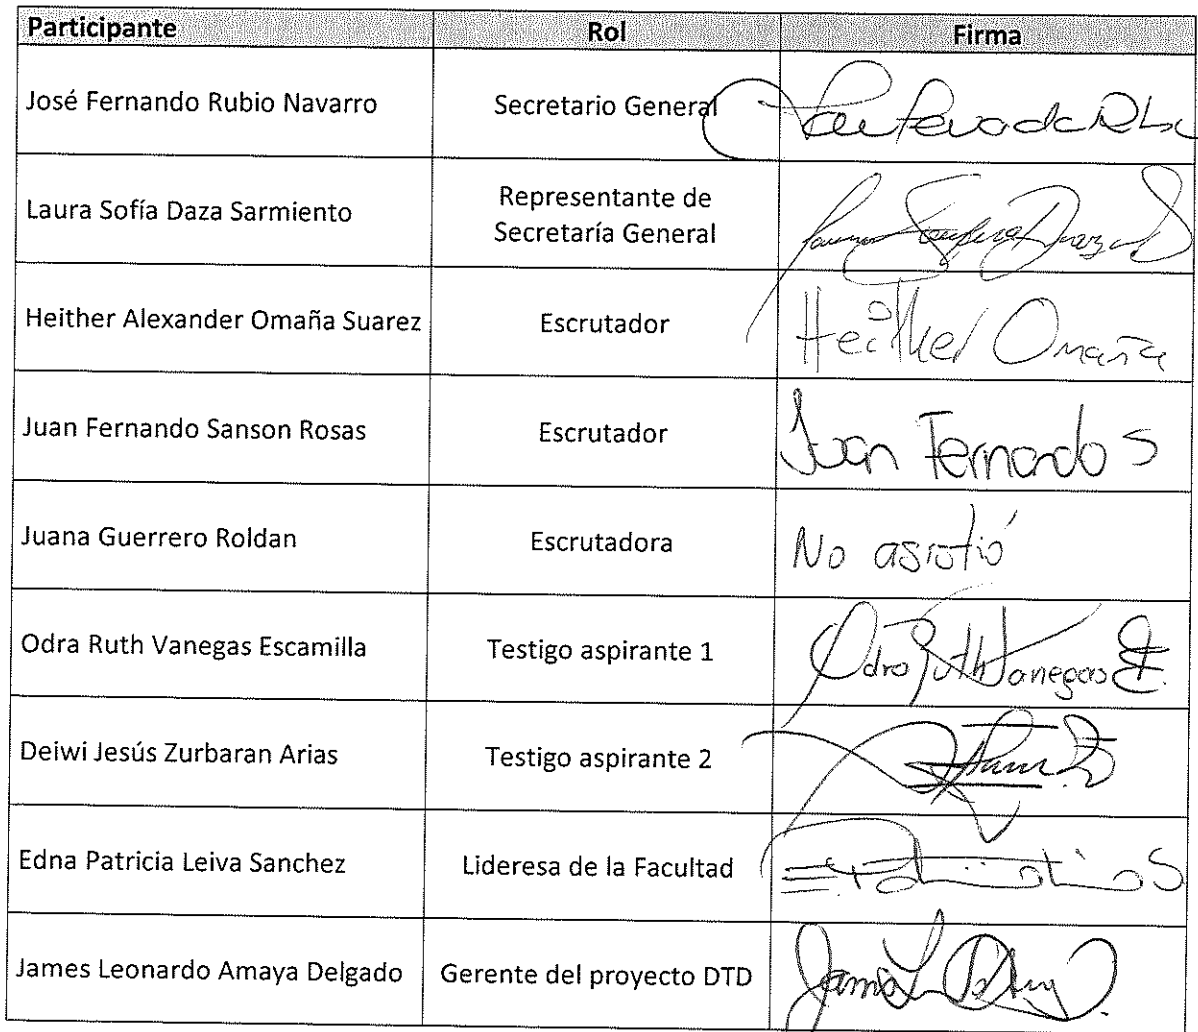 Participante Rol Firma
José Fernando Rubio Navarro Secretario General
Laura Sofía Daza Sarmiento Representante de Secretaría General
Heither Alexander Omaña Suarez Escrutador Heither Omaña
Juan Fernando Sanson Rosas Escrutador Juan Fernando S
Juana Guerrero Roldan Escrutadora No asistió
Odra Ruth Vanegas Escamilla Testigo aspirante 1 Odra Ruth Vanegas E.
Deiwi Jesús Zurbaran Arias Testigo aspirante 2
Edna Patricia Leiva Sanchez Lideresa de la Facultad
James Leonardo Amaya Delgado Gerente del proyecto DTD